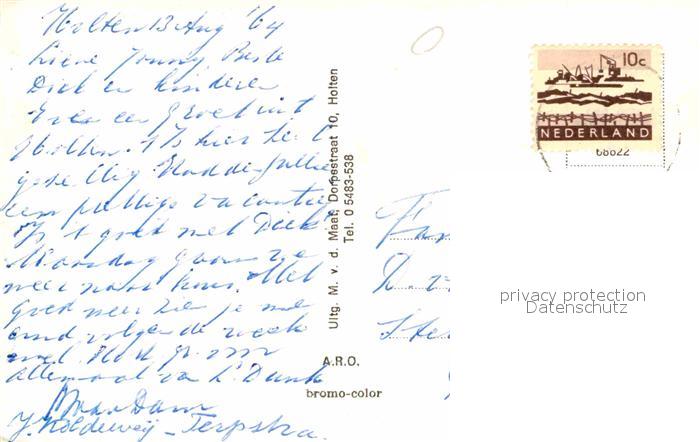 Holten 13 Aug '64
Lieve Jonny, Beste
Dick en kinderen
Even een groet uit
Holten. 't Is hier
gezellig Hadden jullie
een prettige vacantie
Is 't goed met Dick
Maandag gaan we
weer naar huis. Met
goed weer zien je me
eind volgende week
wel.
allemaal van
J. Koldeweij - Terpstra.
Uitg. M. v. d. Maat, Dorpsstraat 10, Holten
Tel. 0 5483-538
A.R.O.
bromo-color
10c
NEDERLAND
68622
Fam
privacy protection
Datenschutz